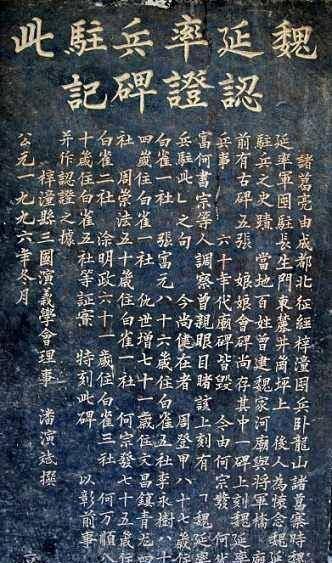 魏延率兵駐此
認證碑記
諸葛亮由成都北征經梓潼囤兵卧龍山諸葛寨時魏
延率軍囤駐長生門東麓井崗坪上 後人為懷念魏延
駐兵之史蹟 當地百姓曾建魏家河廟與將軍橋 廟
前有古碑五張 娘娘會碑尚存其中一碑上刻魏延率
兵事 六十年代廟碑皆毀 今由何宗發 何仕
富何書宗等人調察曾親眼目睹該上刻有「魏延率
兵駐此」之句 今尚健在者 周登甲八十七歲住
白雀一社 張富元八十六歲住白雀五社李永樹八十
四歲住白雀一社 仇世增七十一歲住文昌鎮青龙四
社 周崇法五十歲住白雀一社 何宗發七十五歲住
白雀二社 涂明政六十一歲住白雀三社 何万順八
十歲住白雀五社等証實 特刻此碑 以彰前事
并作認證之據
梓潼縣三國演義學會理事 潘演撰
公元一九九六年冬月